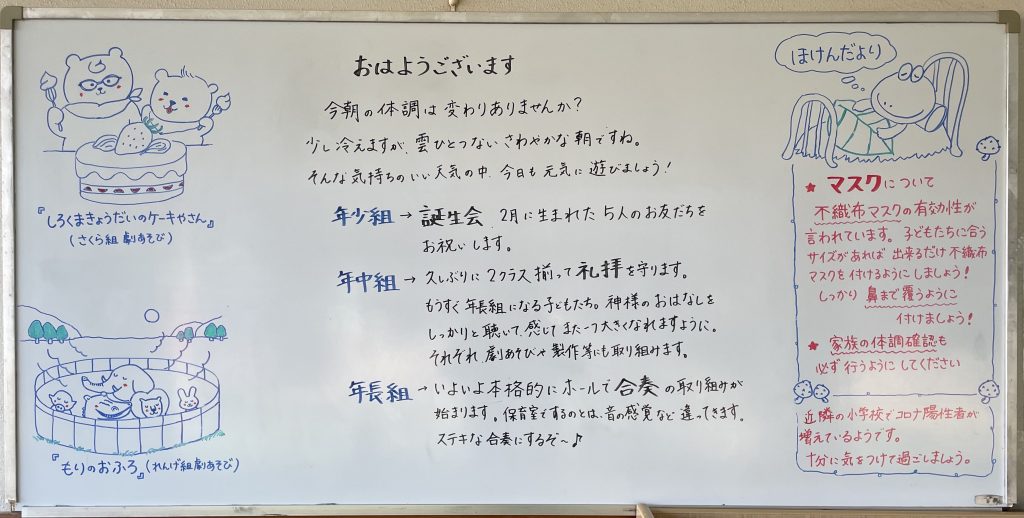 『しろくまきょうだいのケーキやさん』
(さくら組 劇あそび)
『もりのおふろ』(れんげ組劇あそび)
おはようございます
今朝の体調は変わりありませんか？
少し冷えますが、雲ひとつない さわやかな朝ですね。
そんな気持ちのいい天気の中、今日も元気に遊びましょう！
年少組→誕生会 2月に生まれた5人のお友だちを
お祝いします。
年中組→久しぶりに2クラス揃って礼拝を守ります。
もうすぐ年長組になる子どもたち。神様のおはなしを
しっかりと聴いて、感じてまた一つ大きくなれますように。
それぞれ劇あそびや製作等にも取り組みます。
年長組→いよいよ本格的にホールで合奏の取り組みが
始まります。保育室でするのとは、音の感覚など違ってきます。
ステキな合奏にするぞ〜♪
ほけんだより
★ マスクについて
不織布マスクの有効性が
言われています。子どもたちに合う
サイズがあれば出来るだけ不織布
マスクを付けるようにしましょう！
しっかり鼻まで覆うように
付けましょう！
★ 家族の体調確認も
必ず行うようにしてください
近隣の小学校でコロナ陽性者が
増えているようです。
十分に気をつけて過ごしましょう。